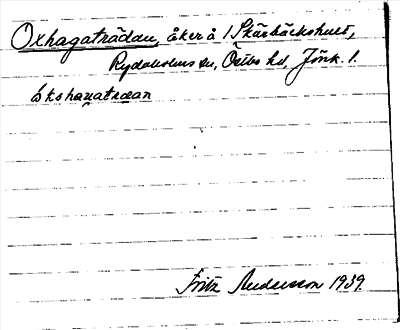 Oxhagaträdan, åker å 1 Skärbäckshult,
Rydaholms sn, Östbo hd, Jönk. l.
Fritz Andersson 1939